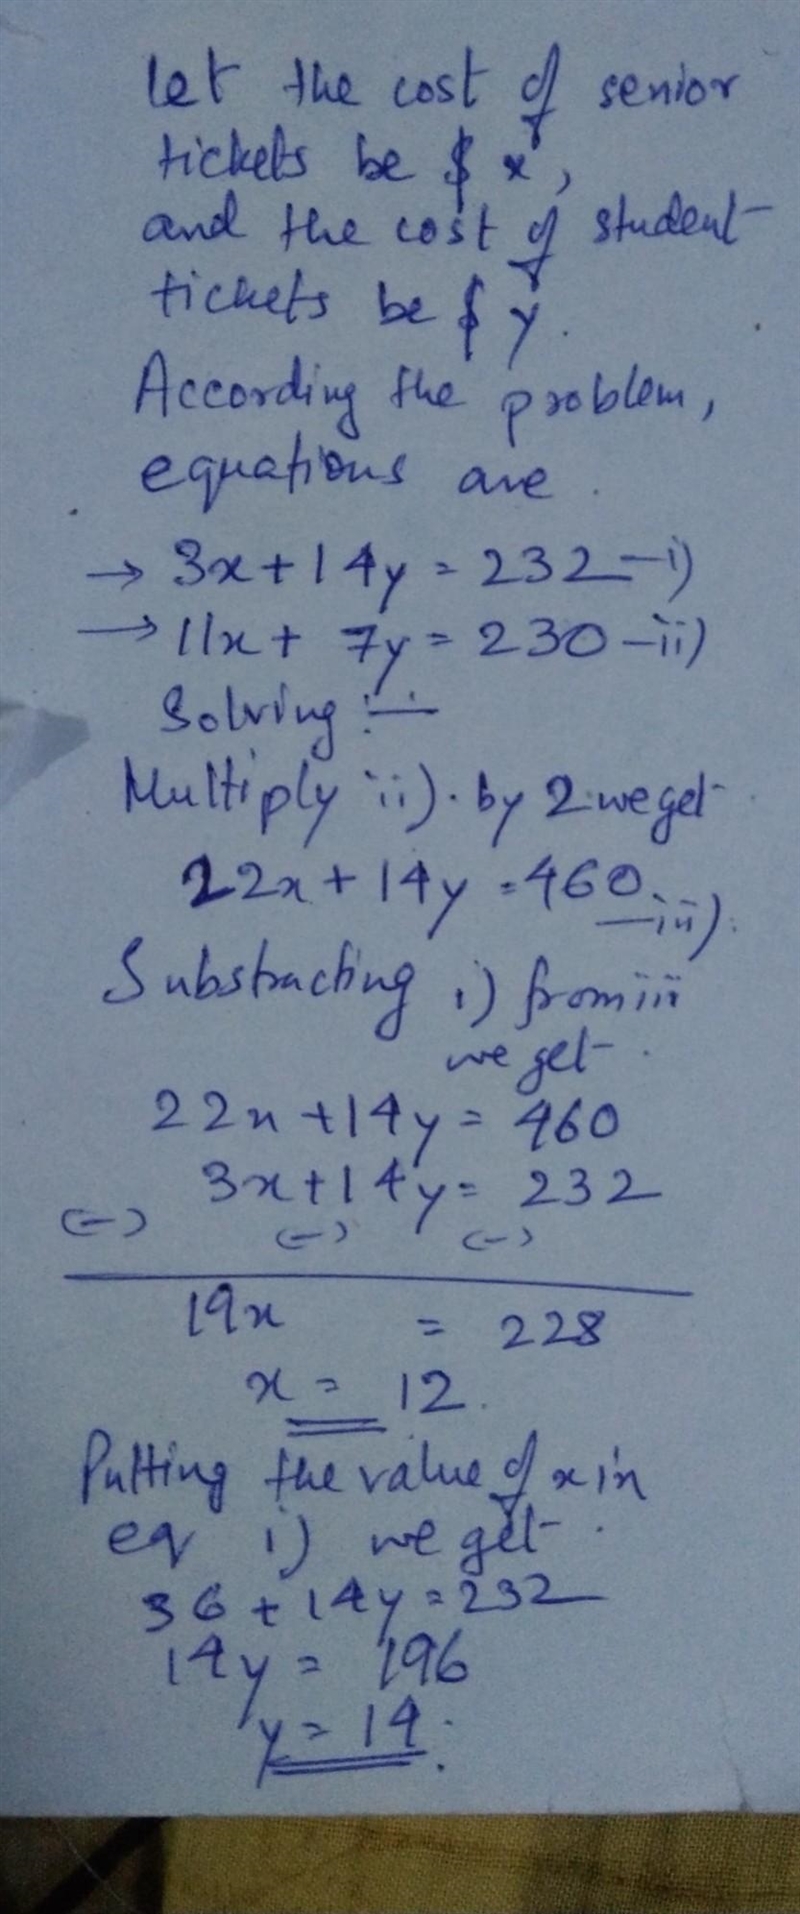 let the cost of senior
tickets be $ x,
and the cost of student
tickets be $ y.
According the problem,
equations are.
→ 3x + 14y = 232 — i)
→ 11x + 7y = 230 — ii)
Solving :—
Multiply ii). by 2 we get
22x + 14y = 460 — iii).
Substracting i) from iii
we get.
22x + 14y = 460
3x + 14y = 232
(-) (-) (-)
19x = 228
x = 12.
Putting the value of x in
eq i) we get.
36 + 14y = 232
14y = 196
y = 14.